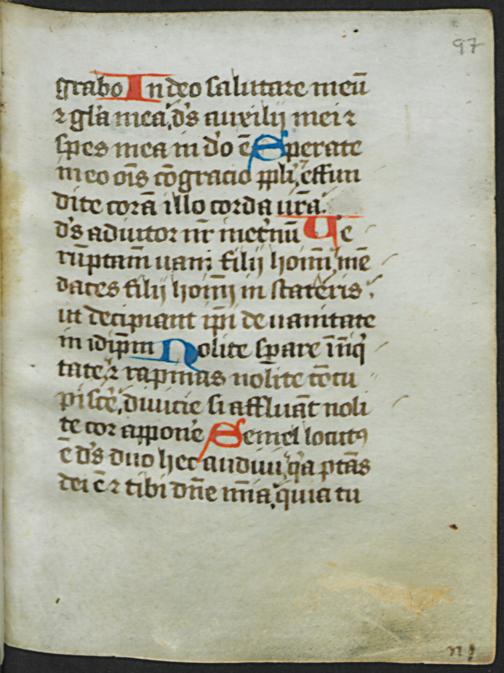 97
grabo In deo salutare meū
⁊ gl̄a mea, d̄s auxilij mei ⁊
spes mea in d̄o ē Sperate
in eo om̄s cōgracio pp̄li, effun
dite corā illo corda vr̄a:
d̄s adiutor nr̄ in et̄nū Ue
rūptam̄ uani filij homī, mē
daces filij homī in stateris
ut decipiant ip̄i de uanitate
in idip̄m Nolite sp̄are ī īiq̄
tate, ⁊ rapinas nolite cōcu
piscē, diuicie si affluāt noli
te cor apponē Semel locutꝰ
ē d̄s duo hec audiui, q̄a ptās
dei ē ⁊ tibi dn̄e mīa, quia tu